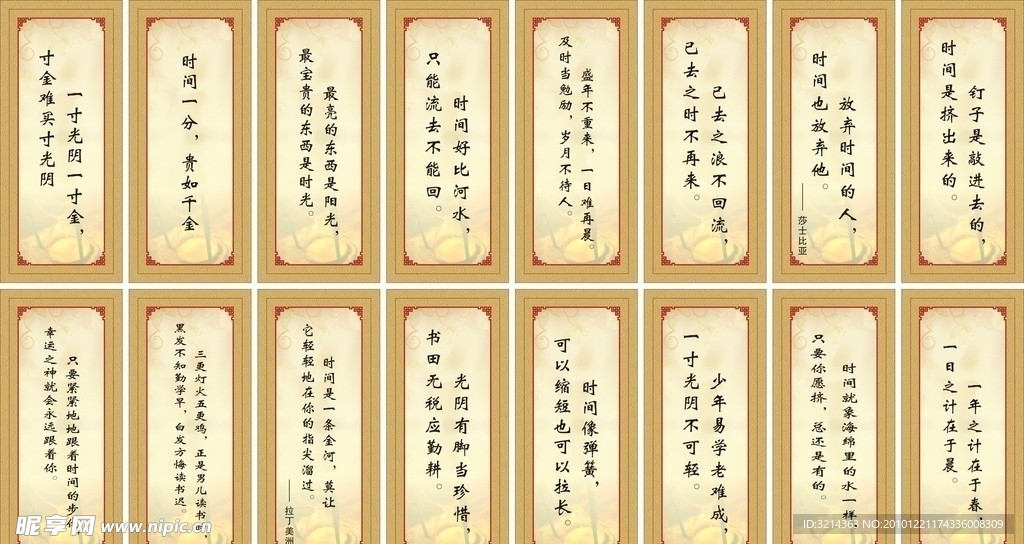 一寸光阴一寸金，
寸金难买寸光阴
时间一分，贵如千金
最亮的东西是阳光，
最宝贵的东西是时光。
时间好比河水，
只能流去不能回。
盛年不重来，一日难再晨。
及时当勉励，岁月不待人。
己去之浪不回流，
己去之时不再来。
放弃时间的人，
时间也放弃他。
——莎士比亚
钉子是敲进去的，
时间是挤出来的。
只要紧紧地地跟着时间的步
幸运之神就会永远跟着你。
三更灯火五更鸡，正是男儿读书时，
黑发不知勤学早，白发方悔读书迟。
时间是一条金河，莫让
它轻轻地在你的指尖溜过。
——拉丁美洲
光阴有脚当珍惜，
书田无税应勤耕。
时间像弹簧，
可以缩短也可以拉长。
少年易学老难成，
一寸光阴不可轻。
时间就象海绵里的水一样
只要你愿挤，总还是有的。
一年之计在于春
一日之计在于晨。
昵享网 www.nipic.cn
ID:3214363 NO:20101221174336008309